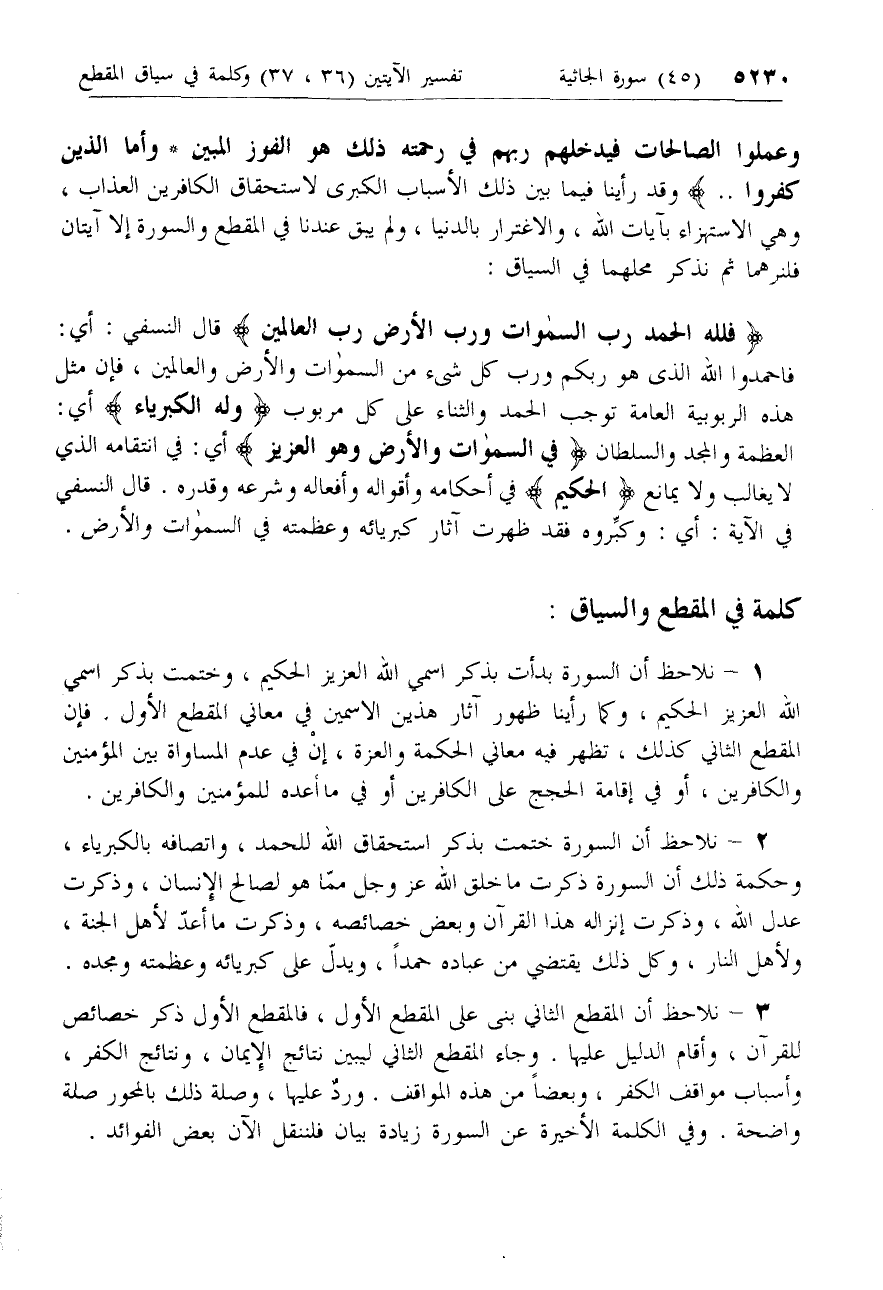 ٥٢٣٠ (٤٥) سورة الجاثية تفسير الآيتين (٣٦ ، ٣٧) وكلمة في سياق المقطع
وعملوا الصالحات فيدخلهم ربهم في رحمته ذلك هو الفوز المبين * وأما الذين
كفروا .. ﴾ وقد رأينا فيما بين ذلك الأسباب الكبرى لاستحقاق الكافرين العذاب ،
وهي الاستهزاء بآيات الله ، والاغترار بالدنيا ، ولم يبق عندنا في المقطع والسورة إلا آيتان
فلنرهما ثم نذكر محلهما في السياق :
﴿ فلله الحمد رب السمٰوات ورب الأرض رب العالمين ﴾ قال النسفي : أي :
فاحمدوا الله الذى هو ربكم ورب كل شىء من السمٰوات والأرض والعالمين ، فإن مثل
هذه الربوبية العامة توجب الحمد والثناء على كل مربوب ﴿ وله الكبرياء ﴾ أي :
العظمة والمجد والسلطان ﴿ في السمٰوات والأرض وهو العزيز ﴾ أي : في انتقامه الذي
لا يغالب ولا يمانع ﴿ الحكيم ﴾ في أحكامه وأقواله وأفعاله وشرعه وقدره . قال النسفي
في الآية : أي : وكبِّروه فقد ظهرت آثار كبريائه وعظمته في السمٰوات والأرض .
كلمة في المقطع والسياق :
١ – نلاحظ أن السورة بدأت بذكر اسمي الله العزيز الحكيم ، وختمت بذكر اسمي
الله العزيز الحكيم ، وكما رأينا ظهور آثار هذين الاسمين في معاني المقطع الأول . فإن
المقطع الثاني كذلك ، تظهر فيه معاني الحكمة والعزة ، إنْ في عدم المساواة بين المؤمنين
والكافرين ، أو في إقامة الحجج على الكافرين أو في ما أعده للمؤمنين والكافرين .
٢ – نلاحظ أن السورة ختمت بذكر استحقاق الله للحمد ، واتصافه بالكبرياء ،
وحكمة ذلك أن السورة ذكرت ما خلق الله عز وجل ممّا هو لصالح الإنسان ، وذكرت
عدل الله ، وذكرت إنزاله هذا القرآن وبعض خصائصه ، وذكرت ما أعدّ لأهل الجنة ،
ولأهل النار ، وكل ذلك يقتضي من عباده حمداً ، ويدلّ على كبريائه وعظمته ومجده .
٣ – نلاحظ أن المقطع الثاني بنى على المقطع الأول ، فالمقطع الأول ذكر خصائص
للقرآن ، وأقام الدليل عليها . وجاء المقطع الثاني ليبين نتائج الإيمان ، ونتائج الكفر ،
وأسباب مواقف الكفر ، وبعضاً من هذه المواقف . وردٌ عليها ، وصلة ذلك بالمحور صلة
واضحة . وفي الكلمة الأخيرة عن السورة زيادة بيان فلننقل الآن بعض الفوائد .